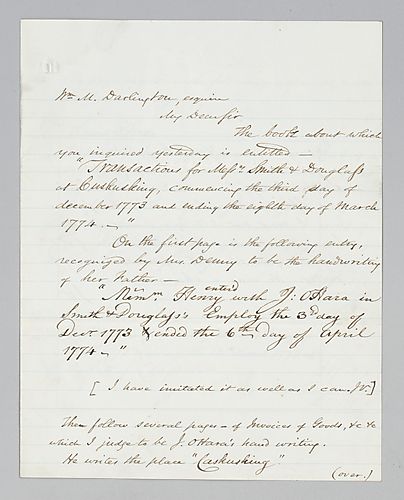 Wm M. Darlington, esquire
My Dear Sir
The book about which
you inquired yesterday is entitled —
"Transactions for Messrs Smith & Douglass
at Cuskusking, commencing the third day of
december 1773 and ending the eighth day of March
1774. — "
On the first page is the following entry,
recognized by Mrs. Denny to be the handwriting
of her Father —
Henry enterd with J. OHara in
Smith & Douglass's Employ the 3d day of
Decr. 1773 & ended the 6th day of April
1774 — "
[ I have imitated it as well as I can. ]
Then follow several pages — of Invoices of Goods, &c &c
which I judge to be J. OHara's hand writing.
He writes the place "Caskusking"
(over.)